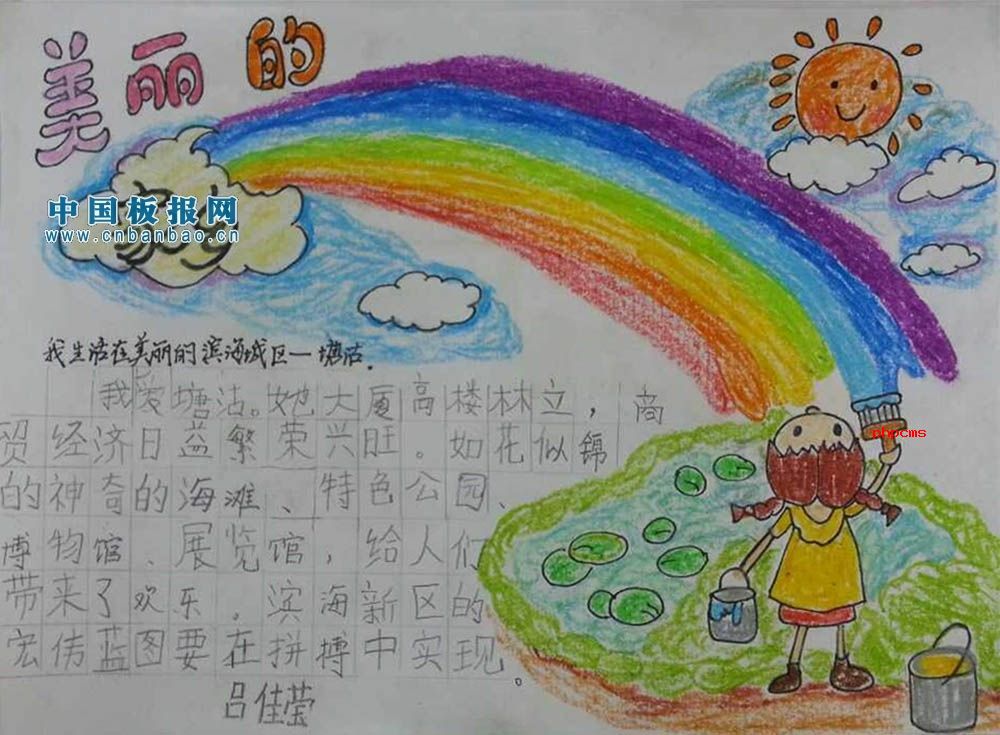 美丽的
中国板报网
www.cnbanbao.cn
我生活在美丽的滨海城区一塘沽.
我爱塘沽。她大厦高楼林立，商
贸经济日益繁荣兴旺。如花似锦
phpcms
的神奇的海滩、特色公园、
博物馆、展览馆，给人们
带来了欢乐。滨海新区的
宏伟蓝图要在拼搏中实现。
吕佳莹